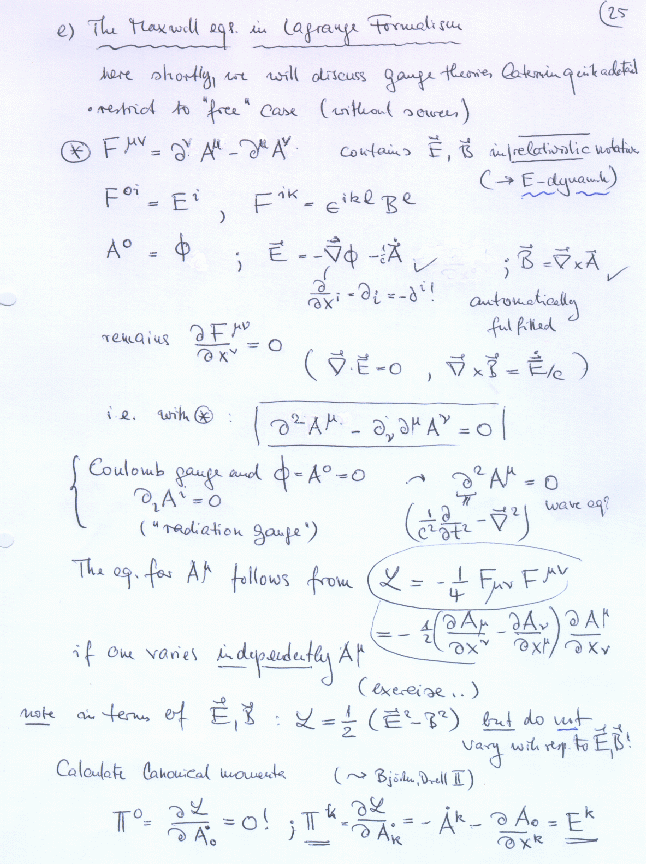 25
e) The Maxwell eqs. in Lagrange Formalism
here shortly, we will discuss gauge theories later in quite a detail
• restrict to "free" case (without sources)
⊛ F^{μν} = ∂^ν A^μ - ∂^μ A^ν. contains E⃗, B⃗ in relativistic notation
(→ E-dynamik)
F^{0i} = E^i , F^{ik} = ε^{ikl} B^l
A^0 = Φ ; E⃗ = -∇⃗Φ - (1/c) Ȧ⃗ ✓ ; B⃗ = ∇⃗ × A⃗ ✓
∂/∂x^i = ∂_i = -∂^i! automatically
fulfilled
remains ∂F^{μν}/∂x^ν = 0 ( ∇⃗·E⃗ = 0 , ∇⃗ × B⃗ = Ė⃗/c )
i.e. with ⊛ : ∂² A^μ - ∂_ν ∂^μ A^ν = 0
{ Coulomb gauge and Φ = A^0 = 0 → ∂² A^μ = 0
∂_i A^i = 0 wave eq?
("radiation gauge") (1/c² ∂/∂t² - ∇⃗²)
The eq. for A^μ follows from L = - 1/4 F_{μν} F^{μν}
= - 1/2 (∂A_μ/∂x^ν - ∂A_ν/∂x^μ) ∂A^μ/∂x_ν
if one varies independently A^μ
(exercise ..)
note in terms of E⃗, B⃗ : L = 1/2 (E⃗² - B⃗²) but do not
vary with resp. to E⃗, B⃗!
Calculate Canonical momenta (↝ Bjorken, Drell II)
Π^0 = ∂L/∂Ȧ_0 = 0! ; Π^k = ∂L/∂Ȧ_k = - Ȧ^k - ∂A_0/∂x^k = E^k